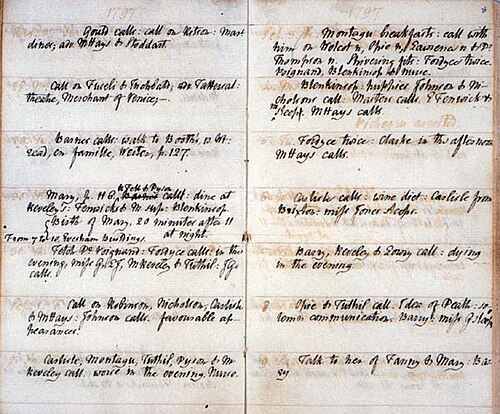 1797
Gould calls: call on Ritson: Mart
dines; adv. MHays & Stoddart
Call on Fuseli & Inchbald; adv. Tattersal:
theatre, Merchant of Venice;—
Barnes calls: walk to Booth's, w
read, en famille, Werter, p. 127.
Mary, J. G calls: dine at
Reveley's: Fenwicks & M. sup: Blenkinsop
Birth of Mary, 20 minutes after 11
at night.
From 7 to 10, Evesham Buildings.
Fetch Dr Poignand: Fordyce calls: in the
evening, miss G & Tuthil:
calls.
Call on Robinson, Nicholson, Carlisle
& MHays: Johnson calls. favourable ap-
pearances.
Carlisle, Montagu, Tuthil, Dyson & M
Reveley call. worse in the evening. Nurse.
1797
Montagu breakfasts: call with
him on Wolcot n, Opie n, Lawrence n & Dr
Thompson n. Shivering fits: Fordyce twice.
Poignand, Blenkinsop & nurse.
Blenkinsop: puppies: Johnson & Ni-
cholson call: Masters calls. E Fenwick &
M sleep. MHays calls
Fordyce twice: Clarke in the afternoon
MHays calls.
Carlisle calls: wine diet: Carlisle from
Brixton: miss Jones sleeps.
Barry, Reveley & Lowry call: dying
in the evening.
Opie & Tuthil call. Idea of Death: so-
lemn communication. Barry: miss G. sleeps
Talk to her of Fanny & Mary: Bar-
ry